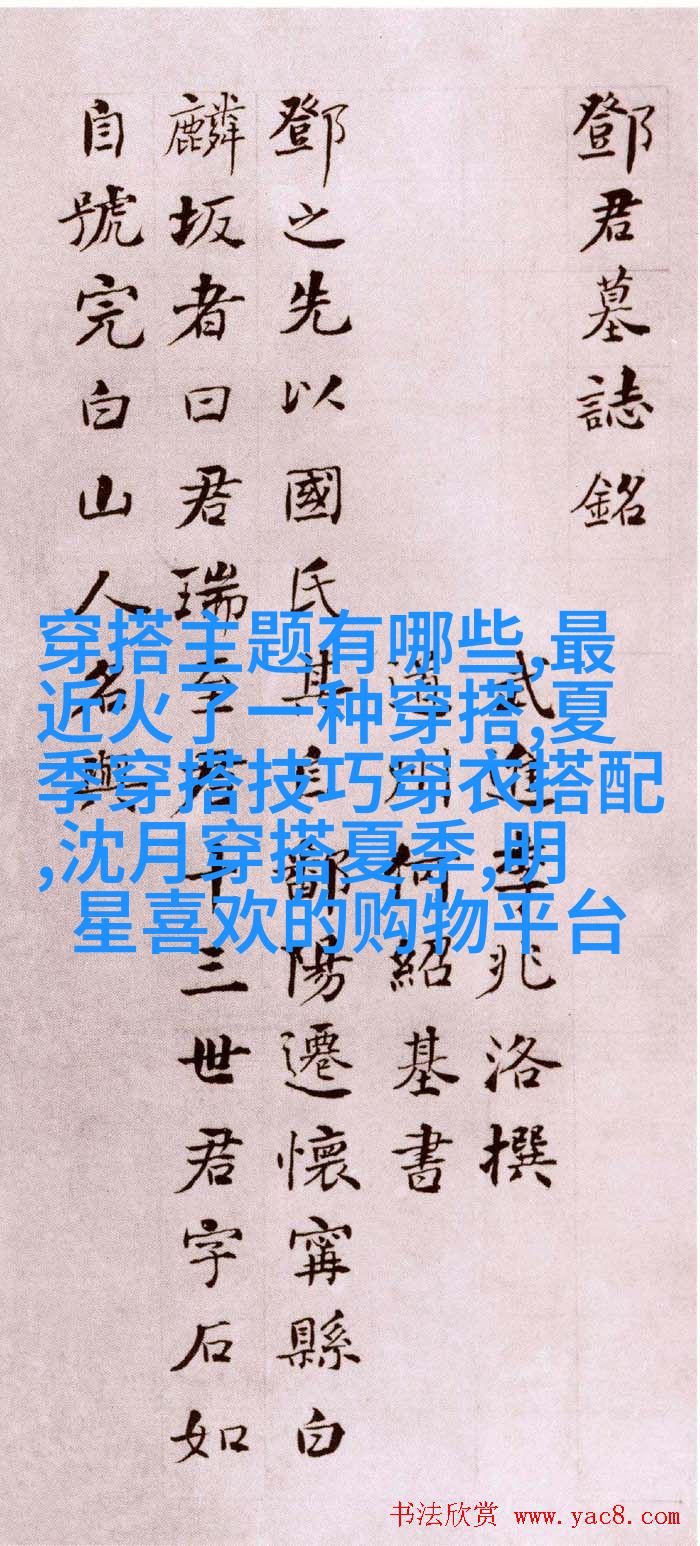 鄧君墓誌銘
武進李兆洛撰
道州何紹基書
鄧之先以國氏其自鄱陽遷懷寗縣白
麟坂者曰君瑞至君十三世君字石如
自號完白山人名與
穿搭主题有哪些,最
近火了一种穿搭,夏
季穿搭技巧穿衣搭配
,沈月穿搭夏季,明
星喜欢的购物平台
书法欣赏 www.yac8.com